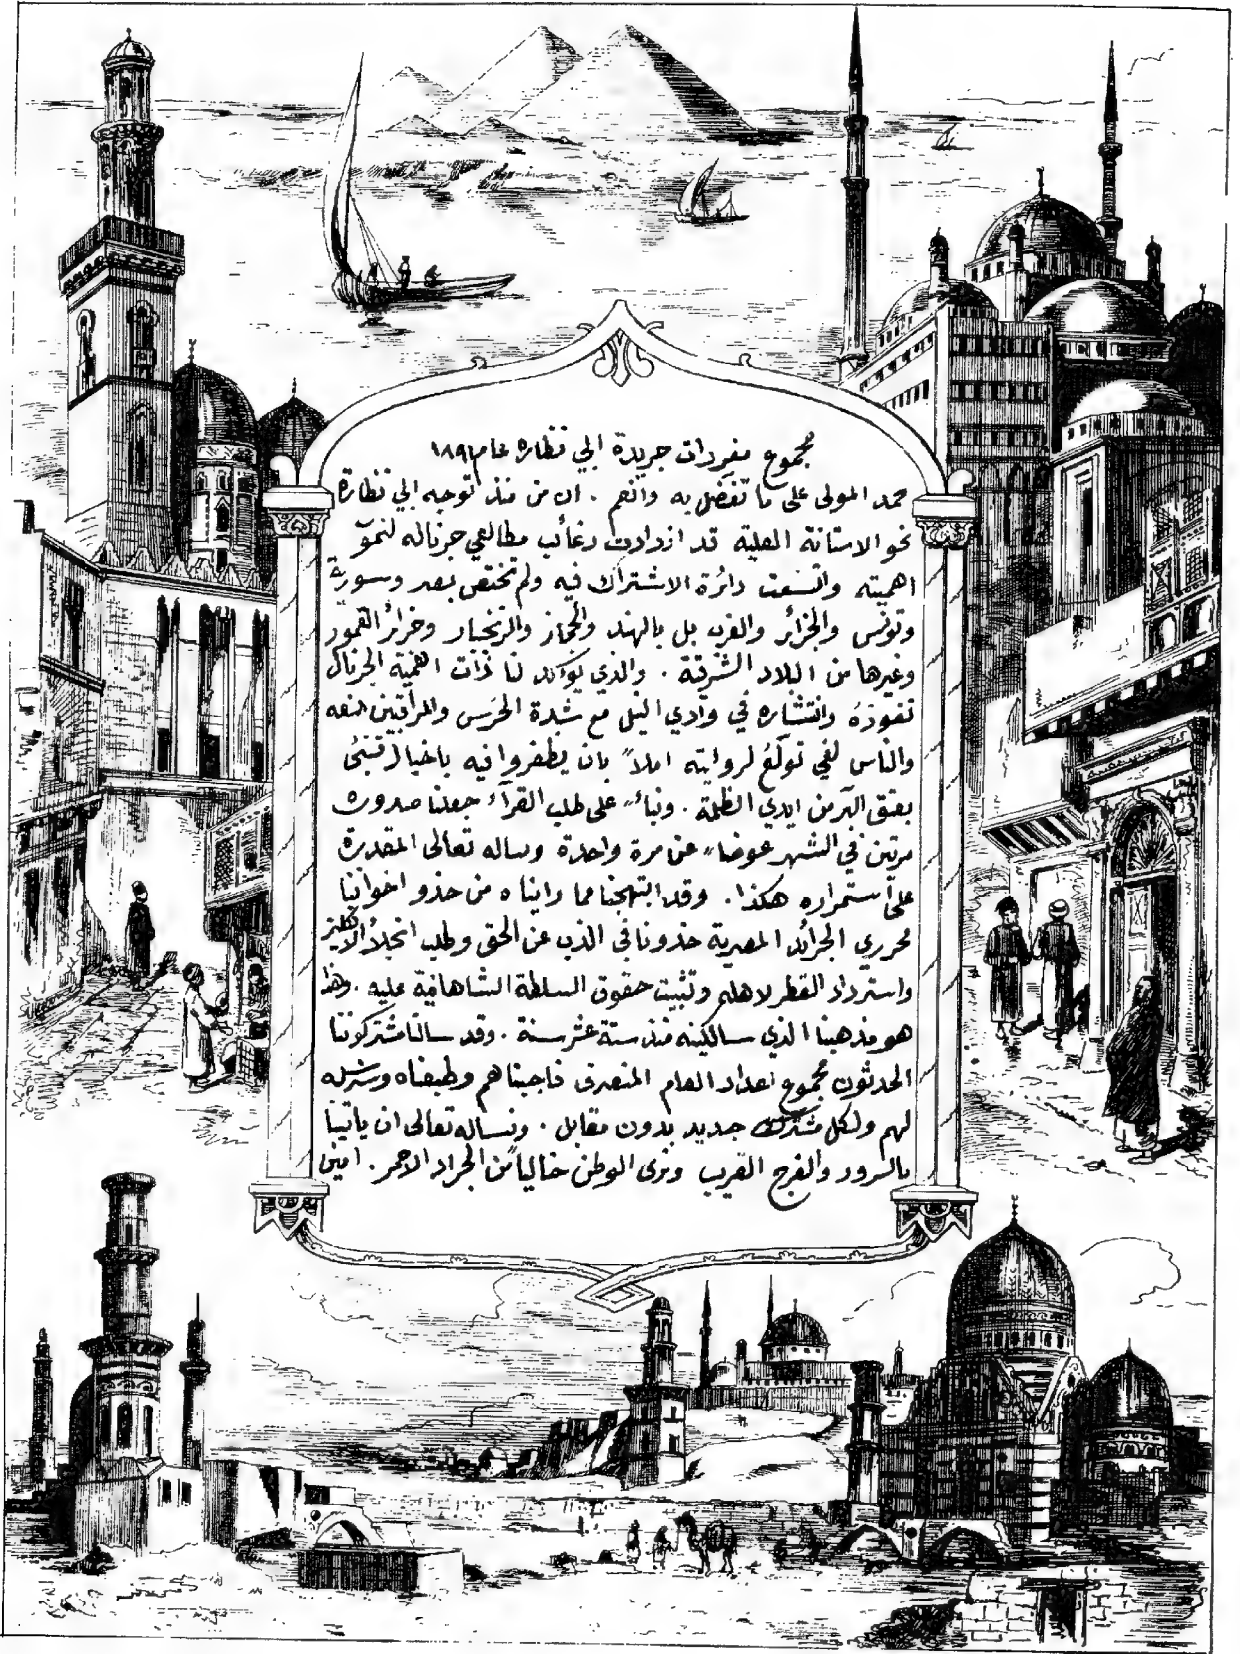 مجموع مفردات جريدة ابي نظاره عام ١٨٩١
نحمد المولى على ما تفضل به وانعم . ان من منذ توجه ابي نظارة
نحو الاستانة العلية قد ازدادت رغائب مطالعي جرناله لنموّ
اهميته واتسعت دائرة الاشتراك فيه ولم تختص بمصر وسورية
وتونس والجزائر والغرب بل بالهند والحجاز والزنجبار وجزائر القمور
وغيرها من البلاد الشرقية . والذي يؤكد لنا ذات اهمية الجرنال
نفوذه وانتشاره في وادي النيل مع شدة الحرس والمراقبين لمنعه
والناس لفي تولّع لروايته املاً بان يظفروا فيه باخبار تنبئ
بعتق البر من ايدي الظلمة . وبناءً على طلب القرآء جعلنا صدوره
مرتين في الشهر عوضاً عن مرة واحدة ونساله تعالى المقدرة
على استمراره هكذا . وقد ابتهجنا مما رايناه من حذو اخواننا
محرري الجرائد المصرية حذونا في الذب عن الحق وطلب انجلاء الانكليز
واسترداد القطر لاهله وتثبيت حقوق السلطة الشاهانية عليه . وهذا
هو مذهبنا الذي سالكينه منذ ستة عشر سنة . وقد سالنا مشتركوننا
الحدثون مجموع اعداد العام المنصرف فاجبناهم وطبعناه ونرسله
لهم ولكل مشترك جديد بدون مقابل . ونساله تعالى ان ياتينا
بالسرور والفرج القريب ونرى الوطن خالياً من الجراد الاحمر . امين